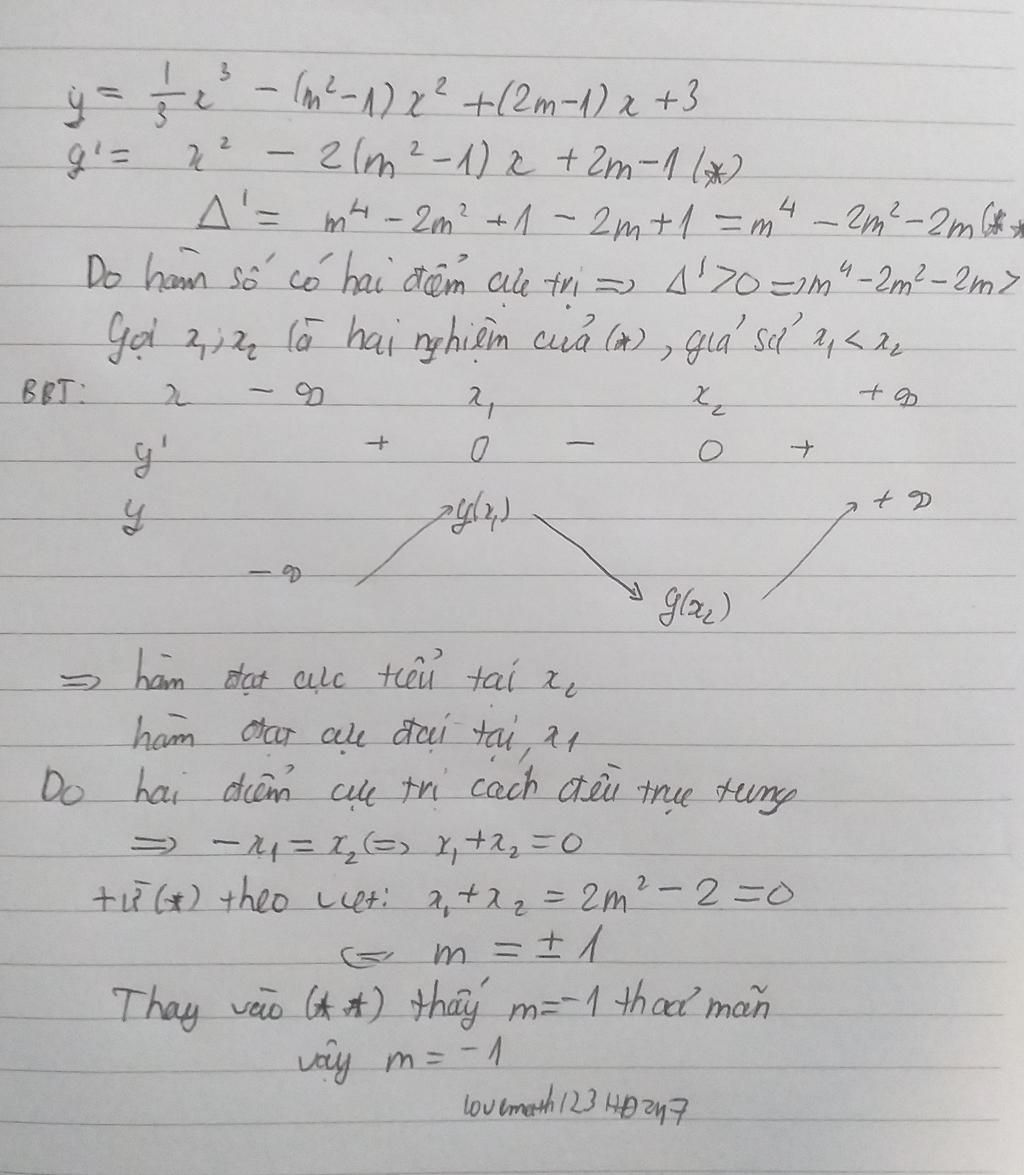 y = 1/3 x³ - (m²-1)x² + (2m-1)x + 3
y' = x² - 2(m²-1)x + 2m-1 (*)
Δ' = m⁴ - 2m² + 1 - 2m + 1 = m⁴ - 2m² - 2m (**
Do hàm số có hai điểm cực trị => Δ' > 0 => m⁴ - 2m² - 2m >
Gọi x₁; x₂ là hai nghiệm của (*), giả sử x₁ < x₂
BBT: x -∞ x₁ x₂ +∞
y' + 0 - 0 +
y y(x₁) +∞
-∞ y(x₂)
=> hàm đạt cực tiểu tại x₂
hàm đạt cực đại tại x₁
Do hai điểm cực trị cách đều trục tung
=> -x₁ = x₂ <=> x₁ + x₂ = 0
từ (*) theo viet: x₁ + x₂ = 2m² - 2 = 0
<=> m = ±1
Thay vào (**) thấy m = -1 thoả mãn
vậy m = -1